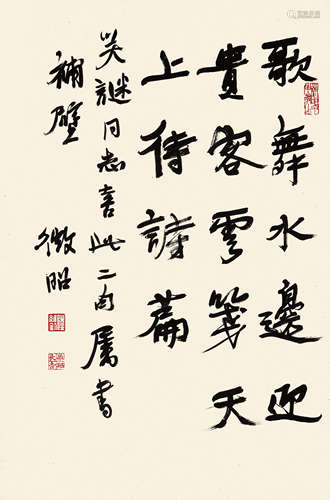 歌舞水邊迎
貴客雲箋天
上待詩篇
笑謎同志喜此二句属書
補壁
微昭